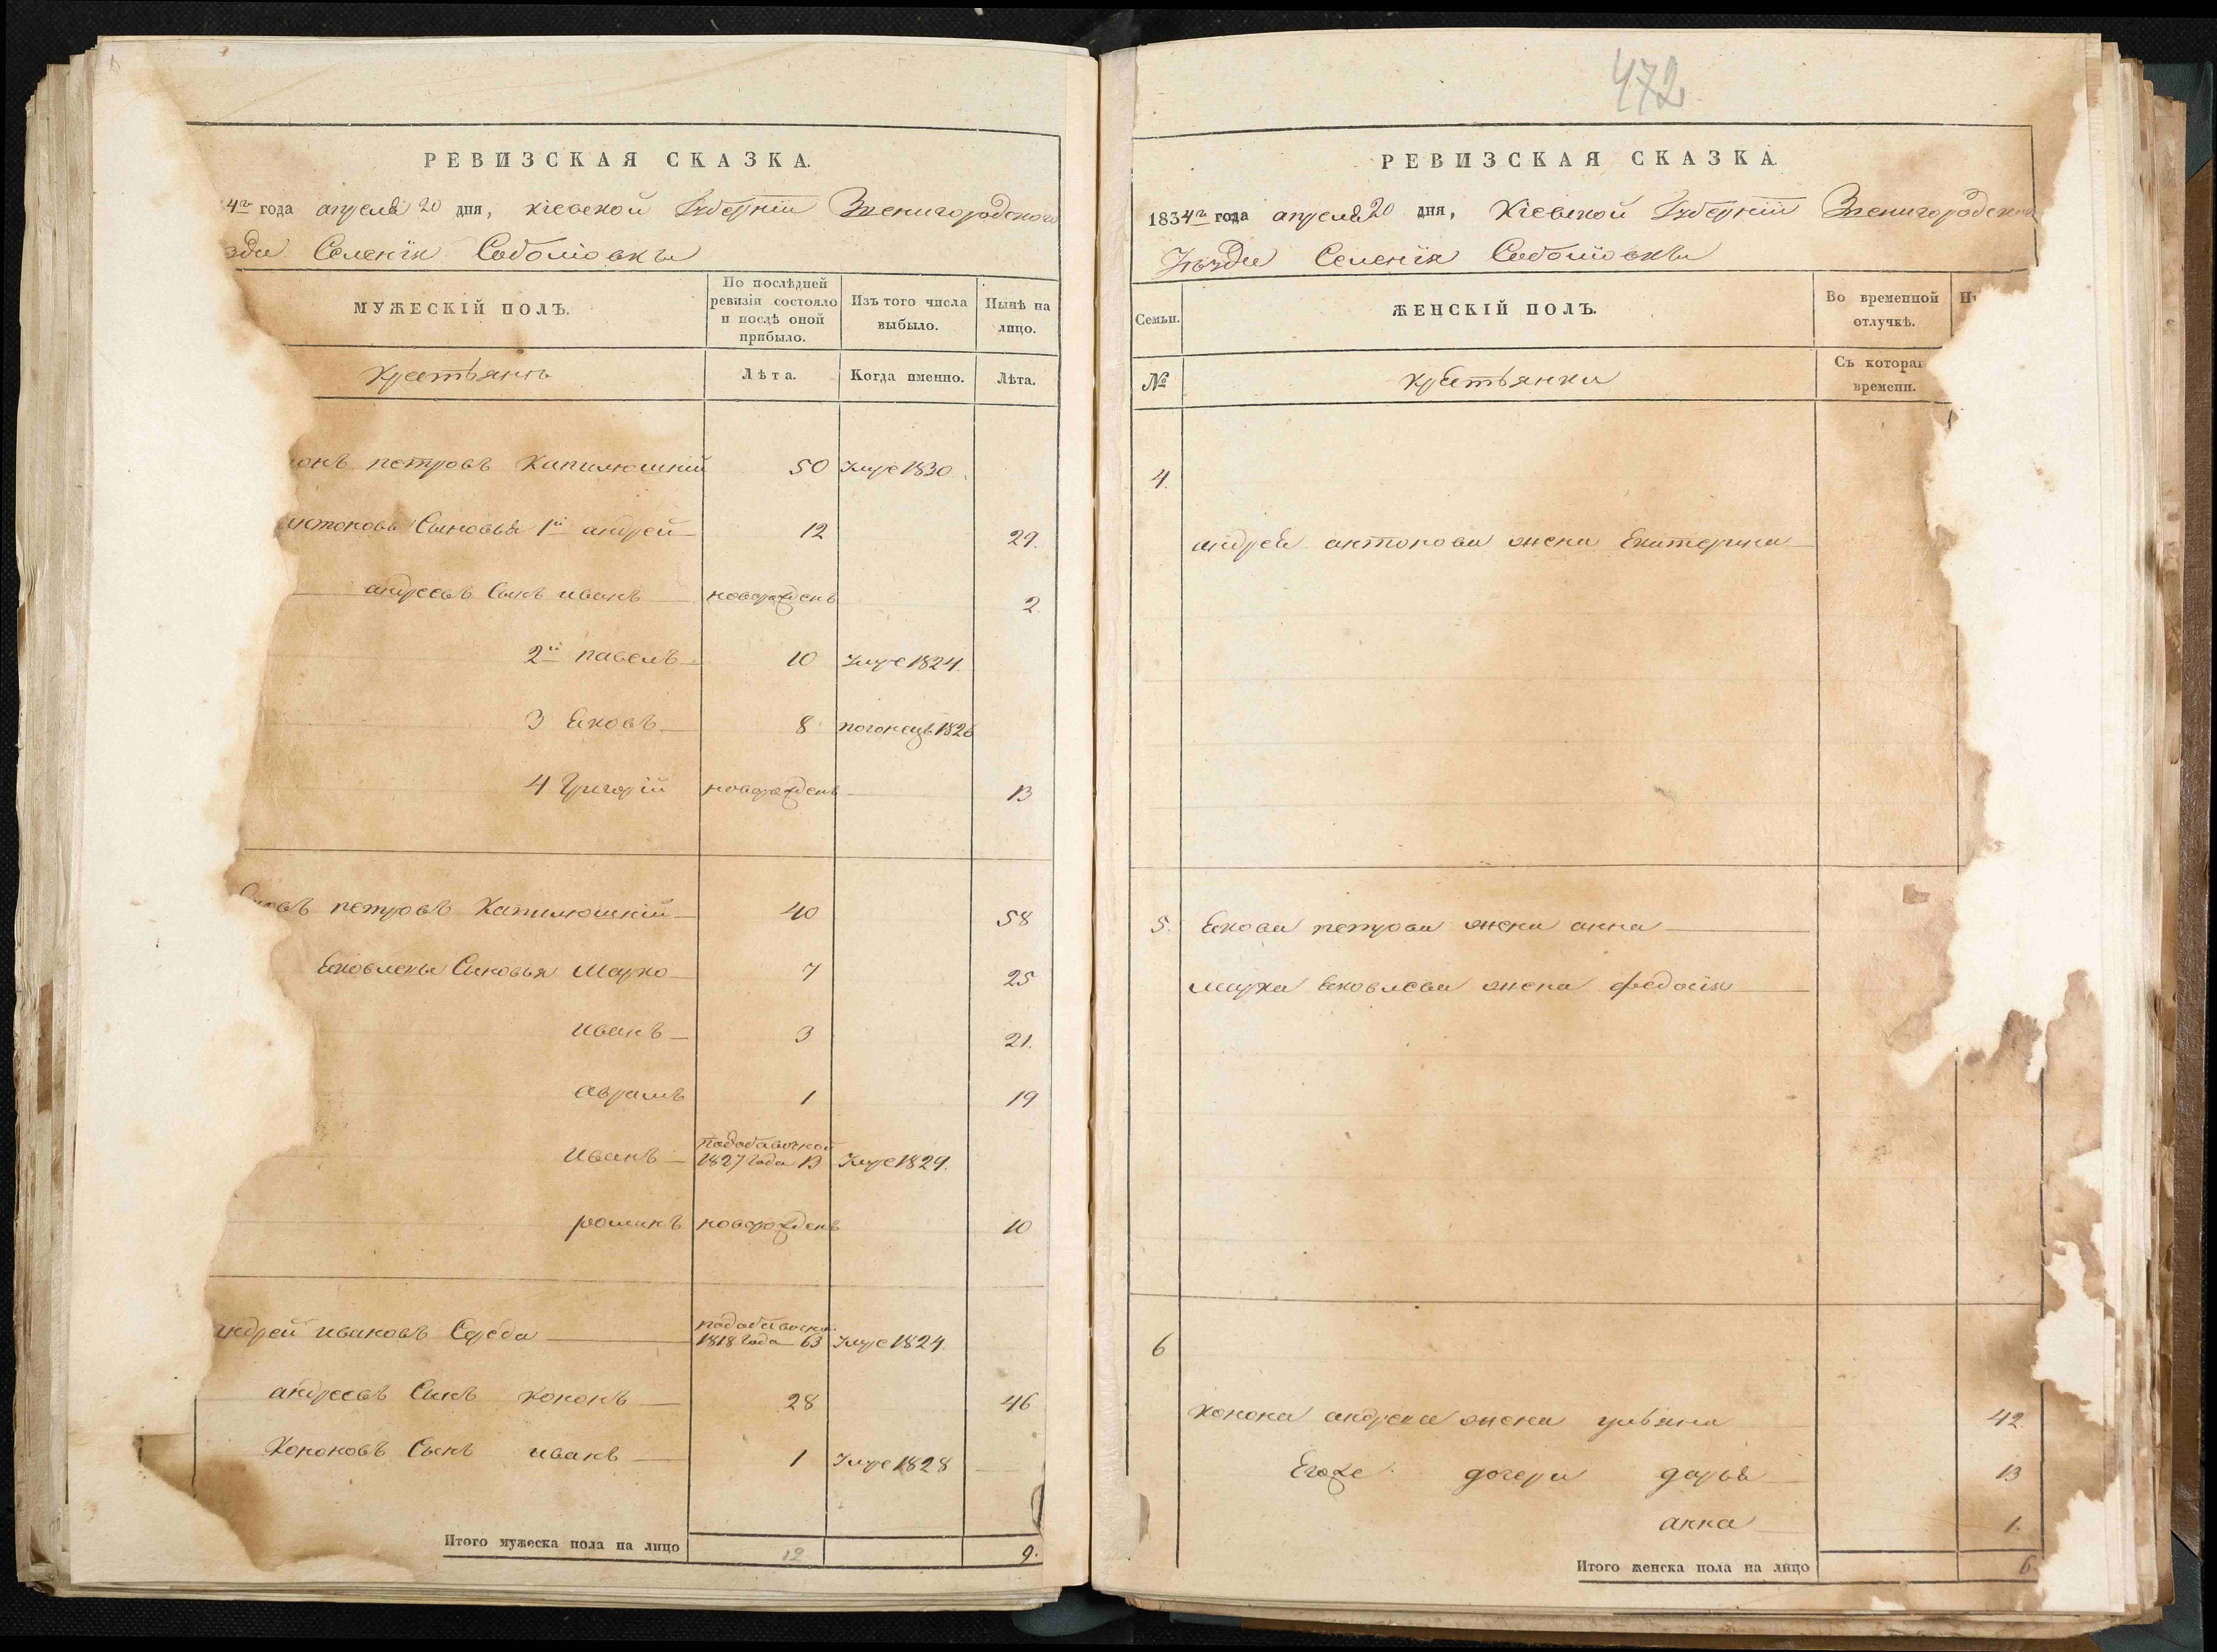 РЕВИЗСКАЯ СКАЗКА.
4го года апреля 20 дня, Кіевской Губерніи Звенигородского
зда Селенія Соболіовкы
МУЖЕСКІЙ ПОЛЪ.
По послѣдней ревизіи состояло и послѣ оной прибыло.
Изъ того числа выбыло.
Нынѣ на лицо.
Крестьянъ
Лѣта.
Когда именно.
Лѣта.
онъ петровъ Капилюшній 50 Умре 1830.
антоновы Сыновья 1й андрей 12 29.
андреевъ Сынъ иванъ новорожденъ 2.
2й павелъ 10 Умре 1824.
3 Ековъ 8 1826
4 Григорій новорожденъ 13
овъ петровъ Капилюшній 40 58
Ековлевы Сыновья Марко 7 25
иванъ 3 21.
аврамъ 1 19
иванъ подобавочной 1827 года 13 Умре 1829.
романъ новорожденъ 10
андрей ивановъ Середа подобавочной 1818 года 63 Умре 1824.
андреевъ Сынъ кононъ 28 46
Кононовъ Сынъ иванъ 1 Умре 1828
Итого мужеска пола на лицо 12 9.
472
РЕВИЗСКАЯ СКАЗКА.
1834го года апреля 20 дня, Кіевской Губерніи Звенигородского
Уѣзда Селенія Соболіовкы
Семьи.
ЖЕНСКІЙ ПОЛЪ.
Во временной отлучкѣ.
№
крестьянки
Съ котораг
времени.
4.
андрея антонова жена Екатерина
5. Екова петрова жена анна
марка Ековлева жена федосія
6
конона андреева жена ульяна 42.
Егоже дочери дарья 13
анна 1.
Итого женска пола на лицо 6.